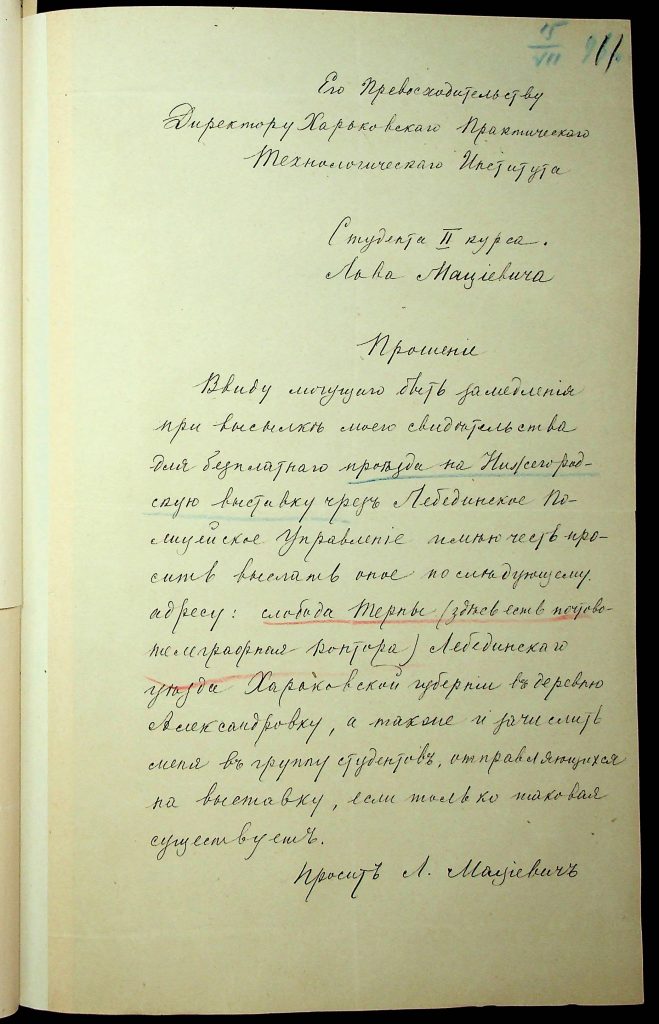 15
VII
11
Его Превосходительству
Директору Харьковскаго Практическаго
Технологическаго Института
Студента II курса.
Льва Мацiевича
Прошенiе
Ввиду могущаго быть замедленiя
при высылкѣ моего свидѣтельства
для безплатнаго проѣзда на Нижегород-
скую выставку чрезъ Лебединское По-
лицейское Управленiе имѣю честь про-
сить выслать оное по слѣдующему
адресу: слобода Терны (здѣсь есть почтово-
телеграфная контора) Лебединскаго
уѣзда Харьковской губернiи въ деревню
Александровку, а также и зачислить
меня въ группу студентовъ, отправляющихся
на выставку, если только таковая
существуетъ.
Проситъ Л. Мацiевичъ